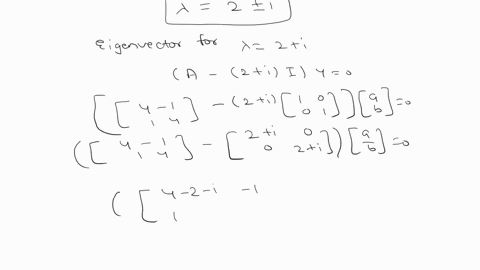 λ = 2 ± i
Eigenvector for λ = 2+i
(A - (2+i) I) Y = 0
[ [ 4 -1 1 4 ] - (2+i) [ 1 0 0 1 ] ] [ a b ] = 0
( [ 4 -1 1 4 ] - [ 2+i 0 0 2+i ] ) [ a b ] = 0
( [ 4-2-i -1
1